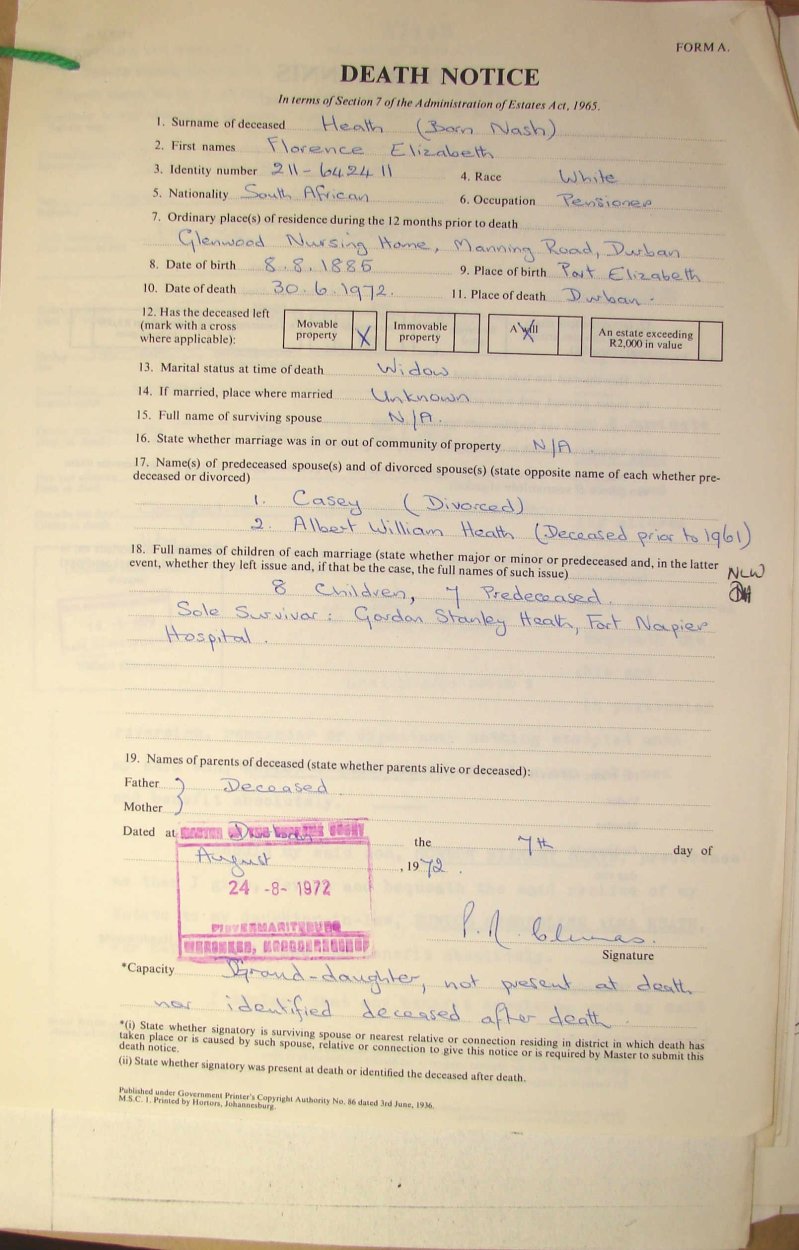 FORM A.
DEATH NOTICE
In terms of Section 7 of the Administration of Estates Act, 1965.
1. Surname of deceased Heath (Born Nash)
2. First names Florence Elizabeth
3. Identity number 211-642411 4. Race White
5. Nationality South African 6. Occupation Pensioner
7. Ordinary place(s) of residence during the 12 months prior to death
Glenwood Nursing Home, Manning Road, Durban
8. Date of birth 8.8.1886 9. Place of birth Port Elizabeth
10. Date of death 30.6.1972. 11. Place of death Durban.
12. Has the deceased left (mark with a cross where applicable): Movable property X Immovable property A Will An estate exceeding R2,000 in value
13. Marital status at time of death Widow
14. If married, place where married Unknown
15. Full name of surviving spouse N/A.
16. State whether marriage was in or out of community of property N/A.
17. Name(s) of predeceased spouse(s) and of divorced spouse(s) (state opposite name of each whether pre-
deceased or divorced)
1. Casey (Divorced)
2. Albert William Heath (Deceased prior to 1961)
18. Full names of children of each marriage (state whether major or minor or predeceased and, in the latter
event, whether they left issue and, if that be the case, the full names of such issue)
NLW
8 Children, 7 Predeceased.
Sole Survivor: Gordon Stanley Heath, Fort Napier
Hospital.
19. Names of parents of deceased (state whether parents alive or deceased):
Father } Deceased.
Mother
Dated at Durban the 7th day of
August , 1972.
24 -8- 1972
PIETERMARITZBURG
Signature
*Capacity Grand-daughter, not present at death
nor identified deceased after death.
*(i) State whether signatory is surviving spouse or nearest relative or connection residing in district in which death has
taken place or is caused by such spouse, relative or connection to give this notice or is required by Master to submit this
death notice.
(ii) State whether signatory was present at death or identified the deceased after death.
Published under Government Printer's Copyright Authority No. 86 dated 3rd June, 1936.
M.S.C. 1. Printed by Hortors, Johannesburg.